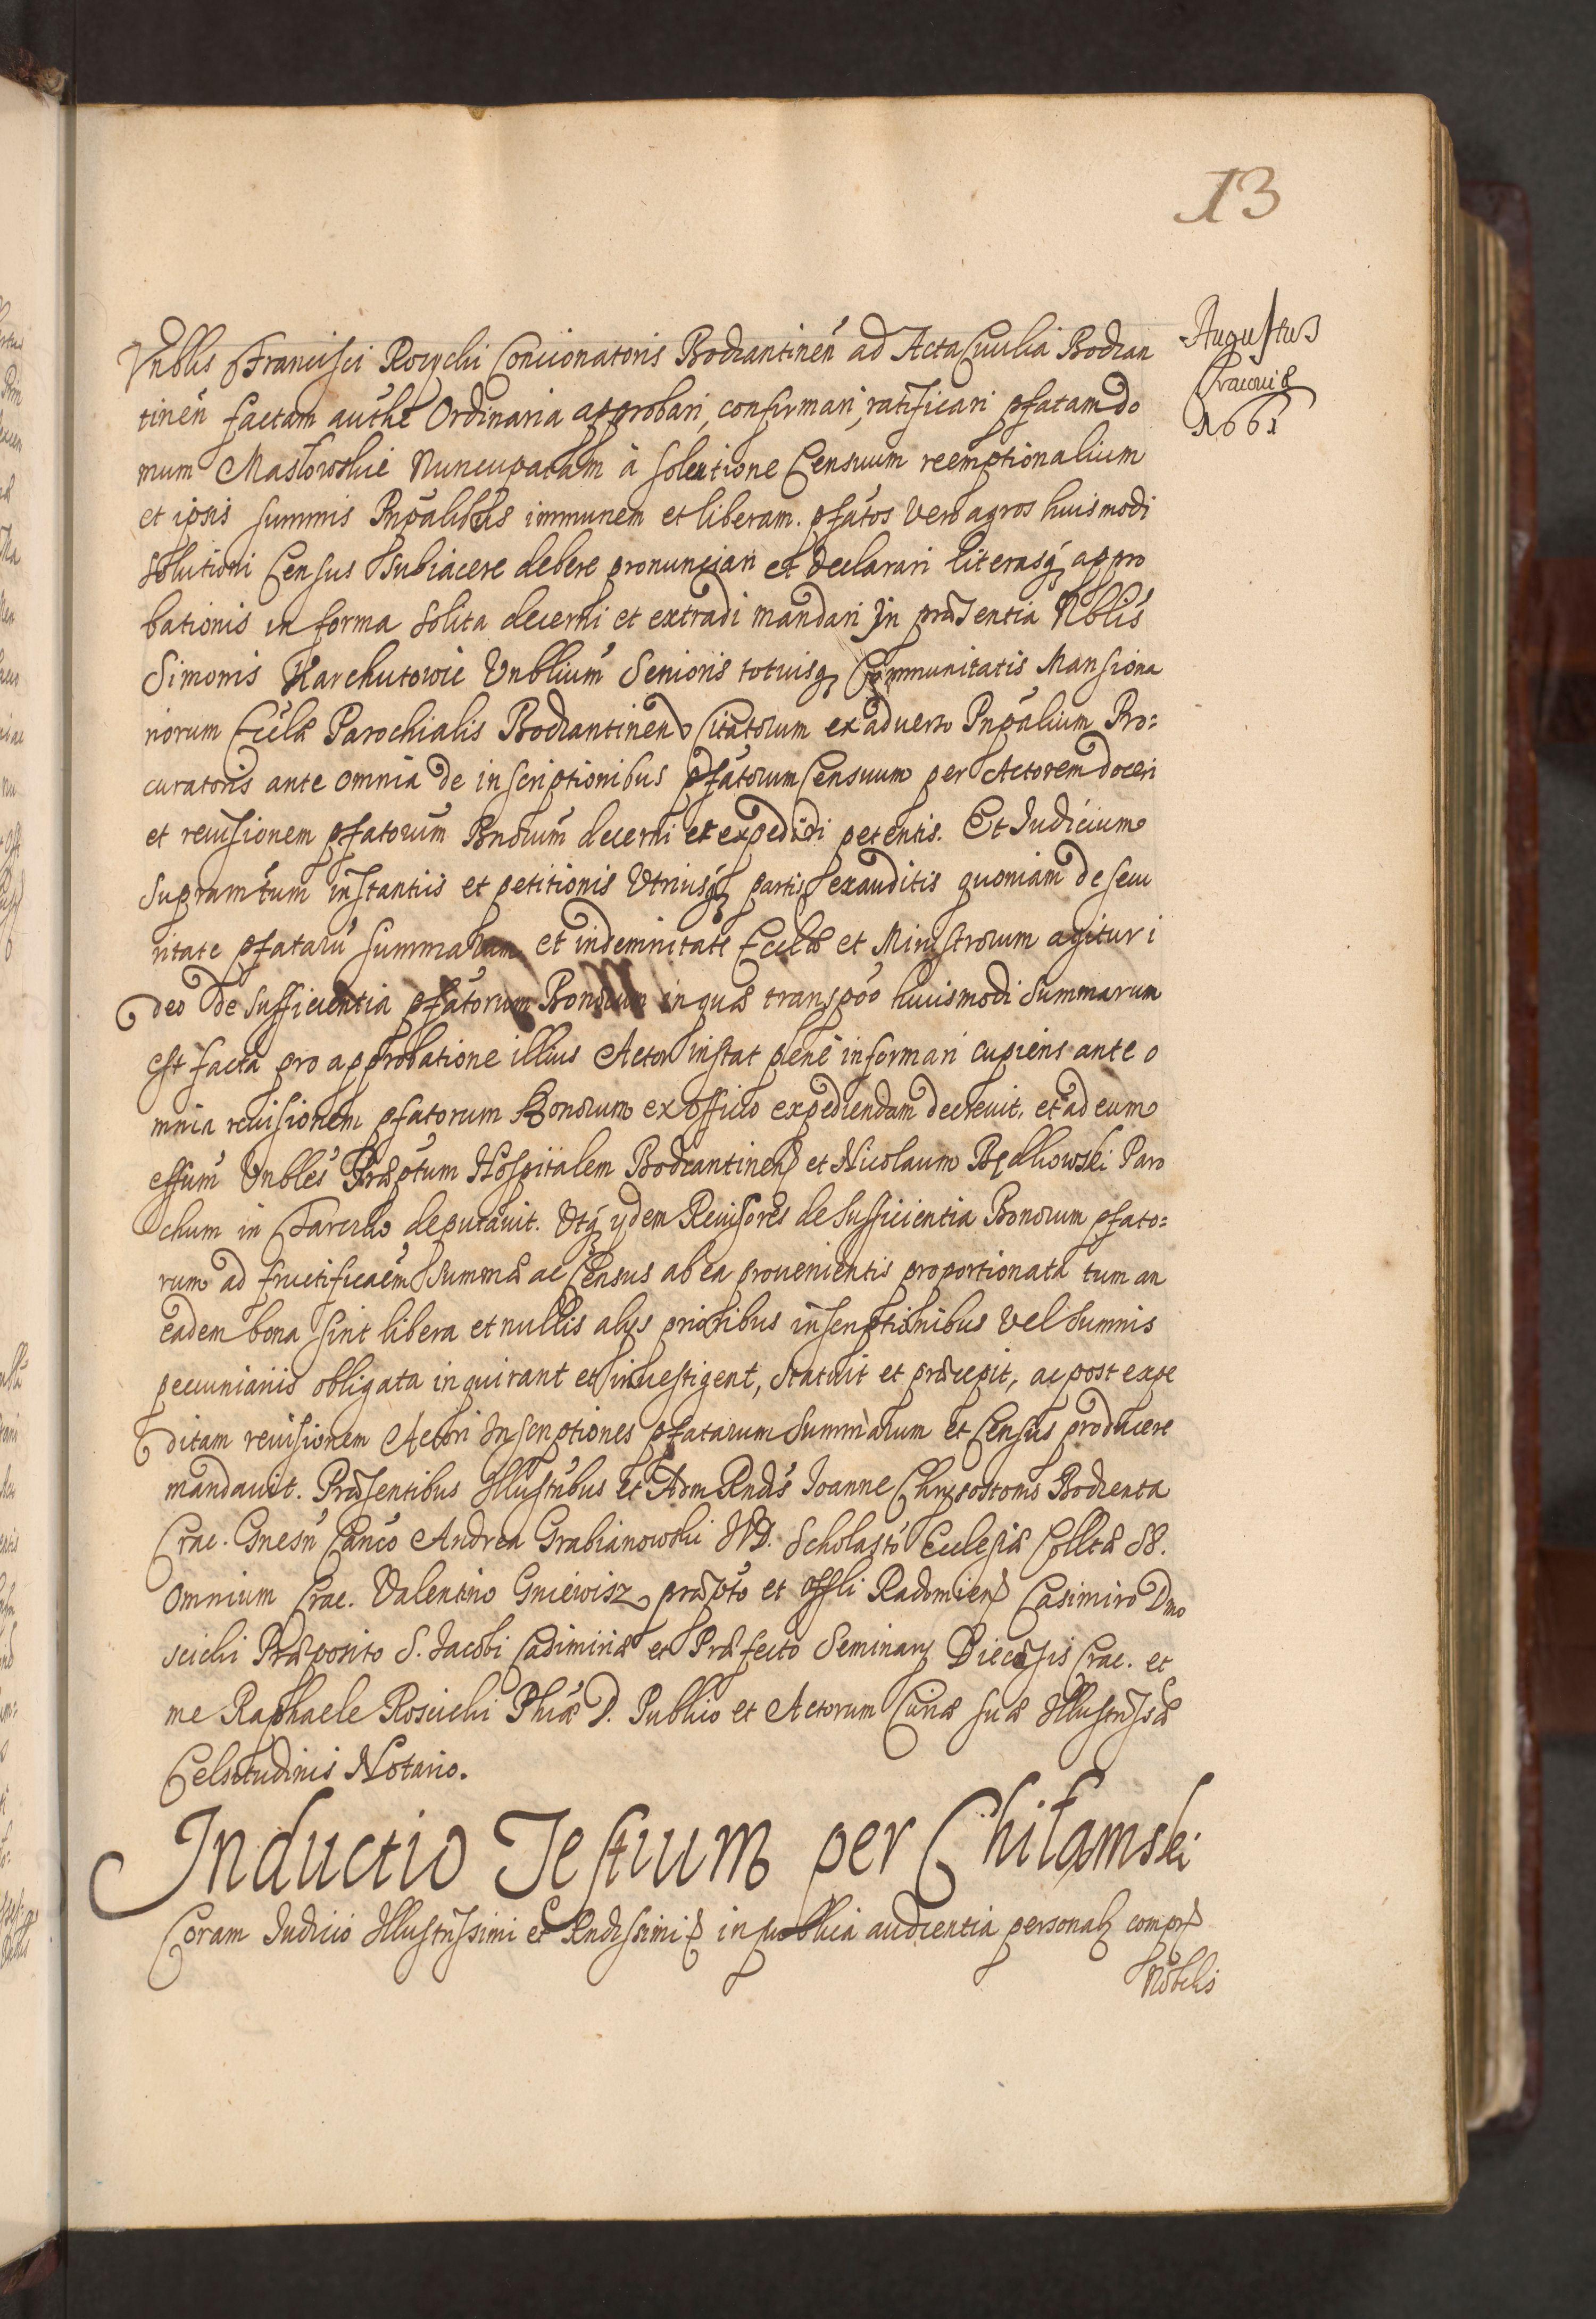 13
Augustus
Cracouiæ
1661
Vnblis Francisci Rozycki Concionatoris Bodzantinen ad Acta Ciuilia Bodzan
tinen factam authe Ordinaria approbari, confirmari, ratificari pfatam do
mum Masłowskie Nuncupatam à solutione Censuum reemptionalium
et ipsis summis Pnpalibus immunem et liberam. pfatos vero agros huismodi
solutioni Census subiacere debere pronunciari et declarari literasq appro
bationis in forma solita decerni et extradi mandari In præsentia Nblis
Simonis Karchutowic Vnblium Senioris totiusq Communitatis Mansiona
riorum Ecclæ Parochialis Bodzantinen Citatorum ex aduerso Pnpalium Pro=
curatoris ante omnia de inscriptionibus pfatorum Censuum per Actorem doceri
et reuisionem pfatorum Bnorum decerni et expediri petentis. Et Iudicium
supramtum instantiis et petitionis Vtriusq partis exauditis quoniam de secu
ritate pfataru summarum et indemnitate Ecclæ et Ministrorum agitur i
deo de sufficientia pfatorum Bonorum in quæ transpoo huiusmodi Summarum
est facta pro approbatione illius Actor instat plenè informari cupiens ante o
mnia reuisionem pfatorum Bonorum ex officio expediendam decreuit, et ad eum
effum Vnbles Præptum Hospitalem Bodzantinen et Nicolaum Będkowski Paro
chum in Tarczko deputauit. Vtq ydem Reuisores de Sufficientia Bonorum pfato=
rum ad fructificaem Summæ ac Census ab ea prouenientis proportionata tum an
eadem bona sint libera et nullis alys prioribus inscriptionibus vel Summis
pecuniariis obligata inquirant et inuestigent, statuit et præcepit, ac post expe
ditam reuisionem Actori Inscriptiones pfatarum Summarum et Census producere
mandauit. Præsentibus Illustribus et Adm Rndis Ioanne Chrysostomo Bodzenta
Crac. Gnesn Canco Andrea Grabianowski IVD. Scholasto Ecclesiæ Colltæ SS.
Omnium Crac. Valentino Gniewisz præpto et Offli Radomien Casimiro Dmo
scicki Præposito S. Iacobi Casimiriæ et Præfecto Seminary Diecæsis Crac. et
me Raphaele Roscicki Phiæ D. Publico et Actorum Curiæ suæ Illustrissæ
Celsitudinis Notario.
Inductio Testium per Chitamski
Coram Iudicio Illustrissimi et Rndissimi in publica audientia personalr compr
Nobilis